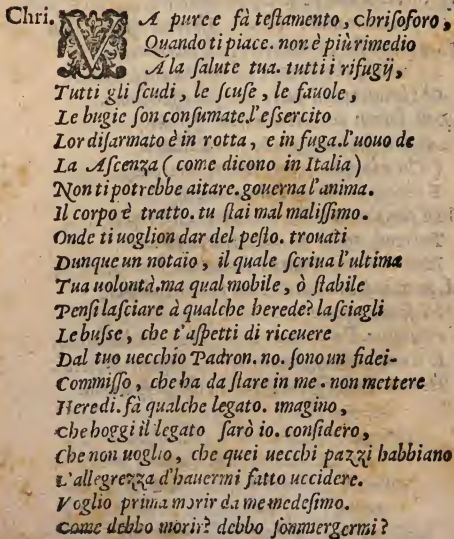 Chri. VA pur e e fà teſtamento, Chriſoforo,
Quando ti piace. non è più rimedio
A la ſalute tua. tutti i rifugij,
Tutti gli ſcudi, le ſcuſe, le fauole,
Le bugie ſon conſumate. l'eſsercito
Lor diſarmato è in rotta, e in fuga. l'uouo de
La Aſcenza (come dicono in Italia)
Non ti potrebbe aitare. gouerna l'anima.
Il corpo è tratto. tu ſtai mal maliſſimo.
Onde ti uoglion dar del peſto. trouati
Dunque un notaio, il quale ſcriua l'ultima
Tua uolontà. ma qual mobile, ò ſtabile
Penſi laſciare à qualche herede? laſciagli
Le buſse, che t'aſpetti di riceuere
Dal tuo uecchio Padron. no. ſono un fidei-
Commiſſo, che ha da ſtare in me. non mettere
Heredi. fà qualche legato. imagino,
Che hoggi il legato ſarò io. conſidero,
Che non uoglio, che quei uecchi pazzi habbiano
L'allegrezza d'hauermi fatto uccidere.
Voglio prima morir da me medeſimo.
Come debbo morir? debbo ſommergermi?